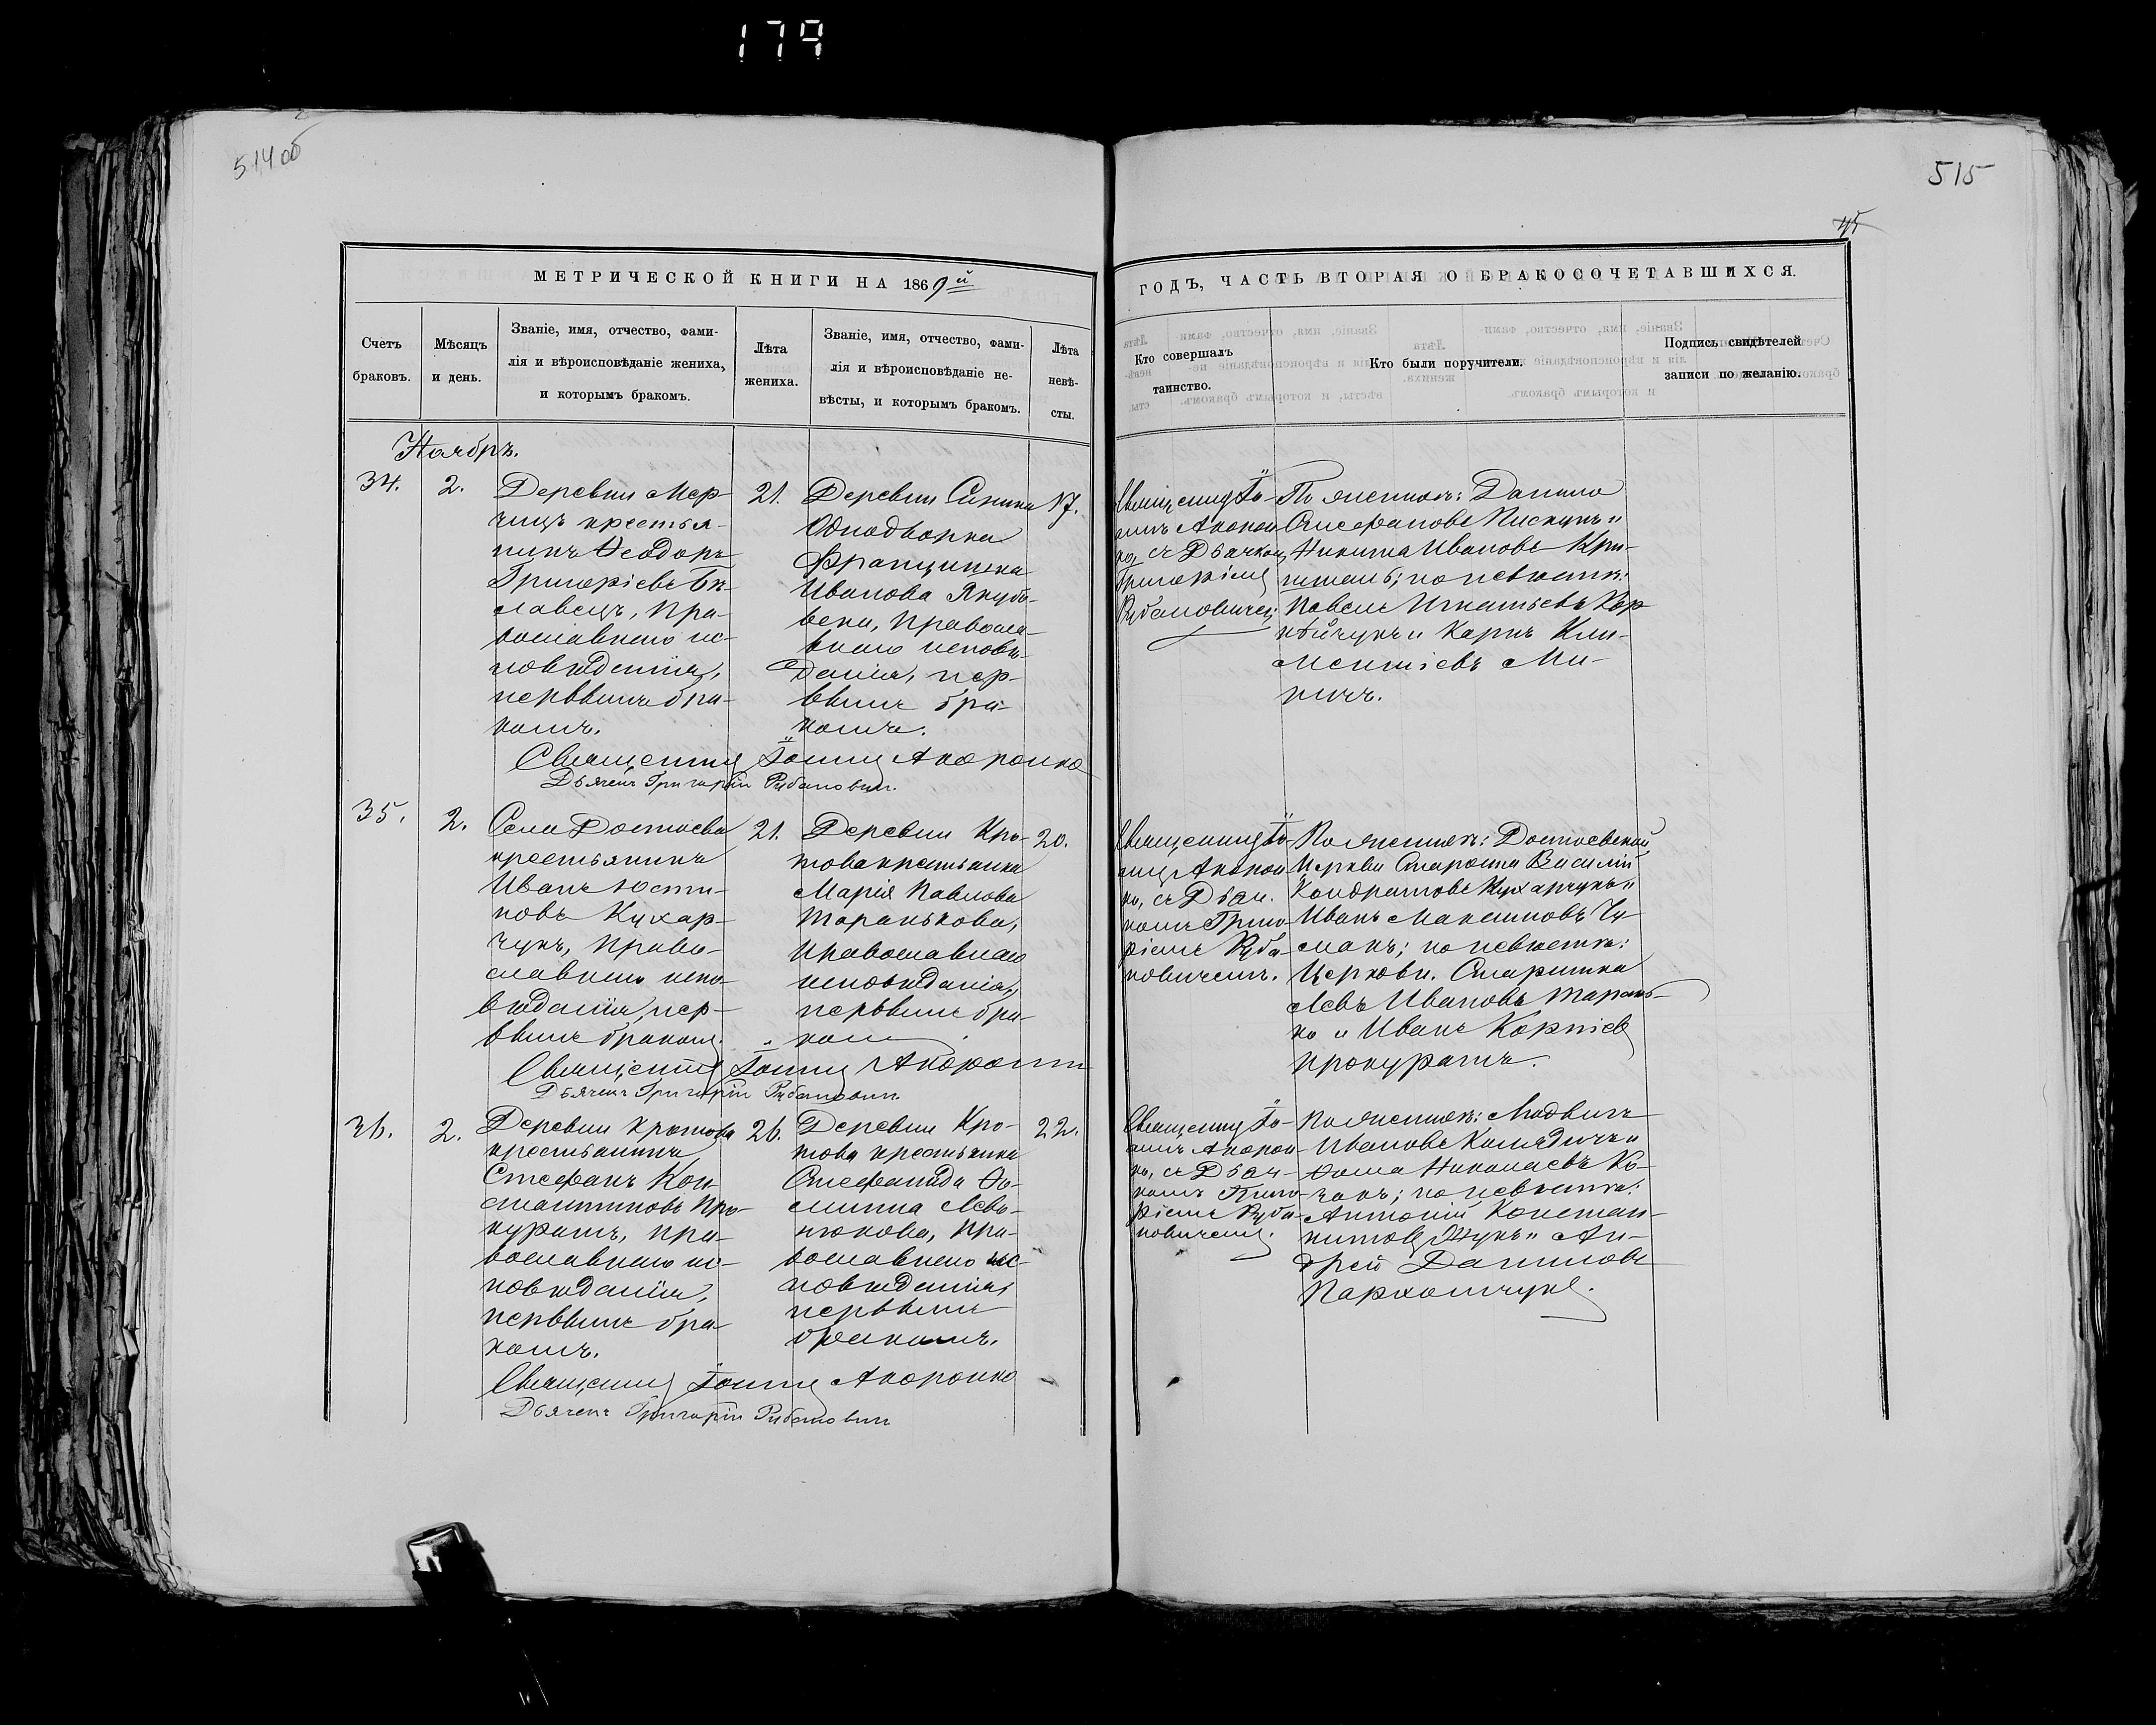 179
514 об
515
45
МЕТРИЧЕСКОЙ КНИГИ НА 1869й
ГОДЪ, ЧАСТЬ ВТОРАЯ О БРАКОСОЧЕТАВШИХСЯ.
Счетъ
браковъ.
Мѣсяцъ
и день.
Званіе, имя, отчество, фами-
лія и вѣроисповѣданіе жениха,
и которымъ бракомъ.
Лѣта
жениха.
Званіе, имя, отчество, фами-
лія и вѣроисповѣданіе не-
вѣсты, и которымъ бракомъ.
Лѣта
невѣ-
сты.
Кто совершалъ
таинство.
Кто были поручители.
Подпись свидѣтелей
записи по желанію.
Ноябрь.
34.
2.
Деревни Мер-
чицъ крестья-
нинъ Ѳеодоръ
Григоріевъ
славецъ, пра-
вославнаго ис-
повѣданія,
первымъ бра-
комъ.
21.
Деревни
Однодворка
Францишка
Иванова Якубо-
вска, православ-
внаго исповѣ-
данія, пер-
вымъ бра-
комъ.
17.
Священникъ Іо-
аннъ Акорон-
ко, съ Дьячкомъ
Григоріемъ
Рубановичемъ
По женихѣ: Данило
Стефановъ Пискунъ и
Никита Ивановъ Кри-
по невѣстѣ:
Павелъ Игнатьевъ Кор-
нѣйчукъ и Карпъ Кли-
ментіевъ Ми-
ничъ.
Священникъ Іоаннъ Акоронко
Дьячекъ Григорій Рубановичъ
35.
2.
Села Достоева
крестьянинъ
Иванъ Юсти-
новъ Кухар-
чукъ, право-
славнаго испо-
вѣданія, пер-
вымъ бракомъ.
21.
Деревни Кро-
това крестьянка
Марія Павлова
Таранькова,
православнаго
исповѣданія,
первымъ бра-
комъ.
20.
Священникъ Іо-
аннъ Акорон-
ко, съ Дьяч-
комъ Григо-
ріемъ Руба-
новичемъ.
По женихѣ: Достоевской
Церкви Староста Василій
Кондратовъ Кухарчукъ и
Иванъ Максимовъ Чу-
макъ; по невѣстѣ:
Церковн. Старишка
Левъ Ивановъ Тарань-
ко и Иванъ Корніевъ
Прокуратъ.
Священникъ Іоаннъ Акоронко
Дьячекъ Григорій Рубановичъ
36.
2.
Деревни Кротова
крестьянинъ
Стефанъ Кон-
стантиновъ Про-
куратъ, пра-
вославнаго ис-
повѣданія,
первымъ бра-
комъ.
26.
Деревни Кро-
това крестьянка
Стефанида Ѳо-
мина Лево-
нюкова, пра-
вославнаго ис-
повѣданія,
первымъ
бракомъ.
22.
Священникъ Іо-
аннъ Акорон-
ко, съ Дьяч-
комъ Григо-
ріемъ Руба-
новичемъ.
По женихѣ: Людвигъ
Ивановъ Колядичъ и
Ѳома Николаевъ Ко-
чанъ; по невѣстѣ:
Антоній Констан-
тиновъ Жукъ и Ан-
дрей Даниловъ
Пархомчукъ.
Священникъ Іоаннъ Акоронко
Дьячекъ Григорій Рубановичъ